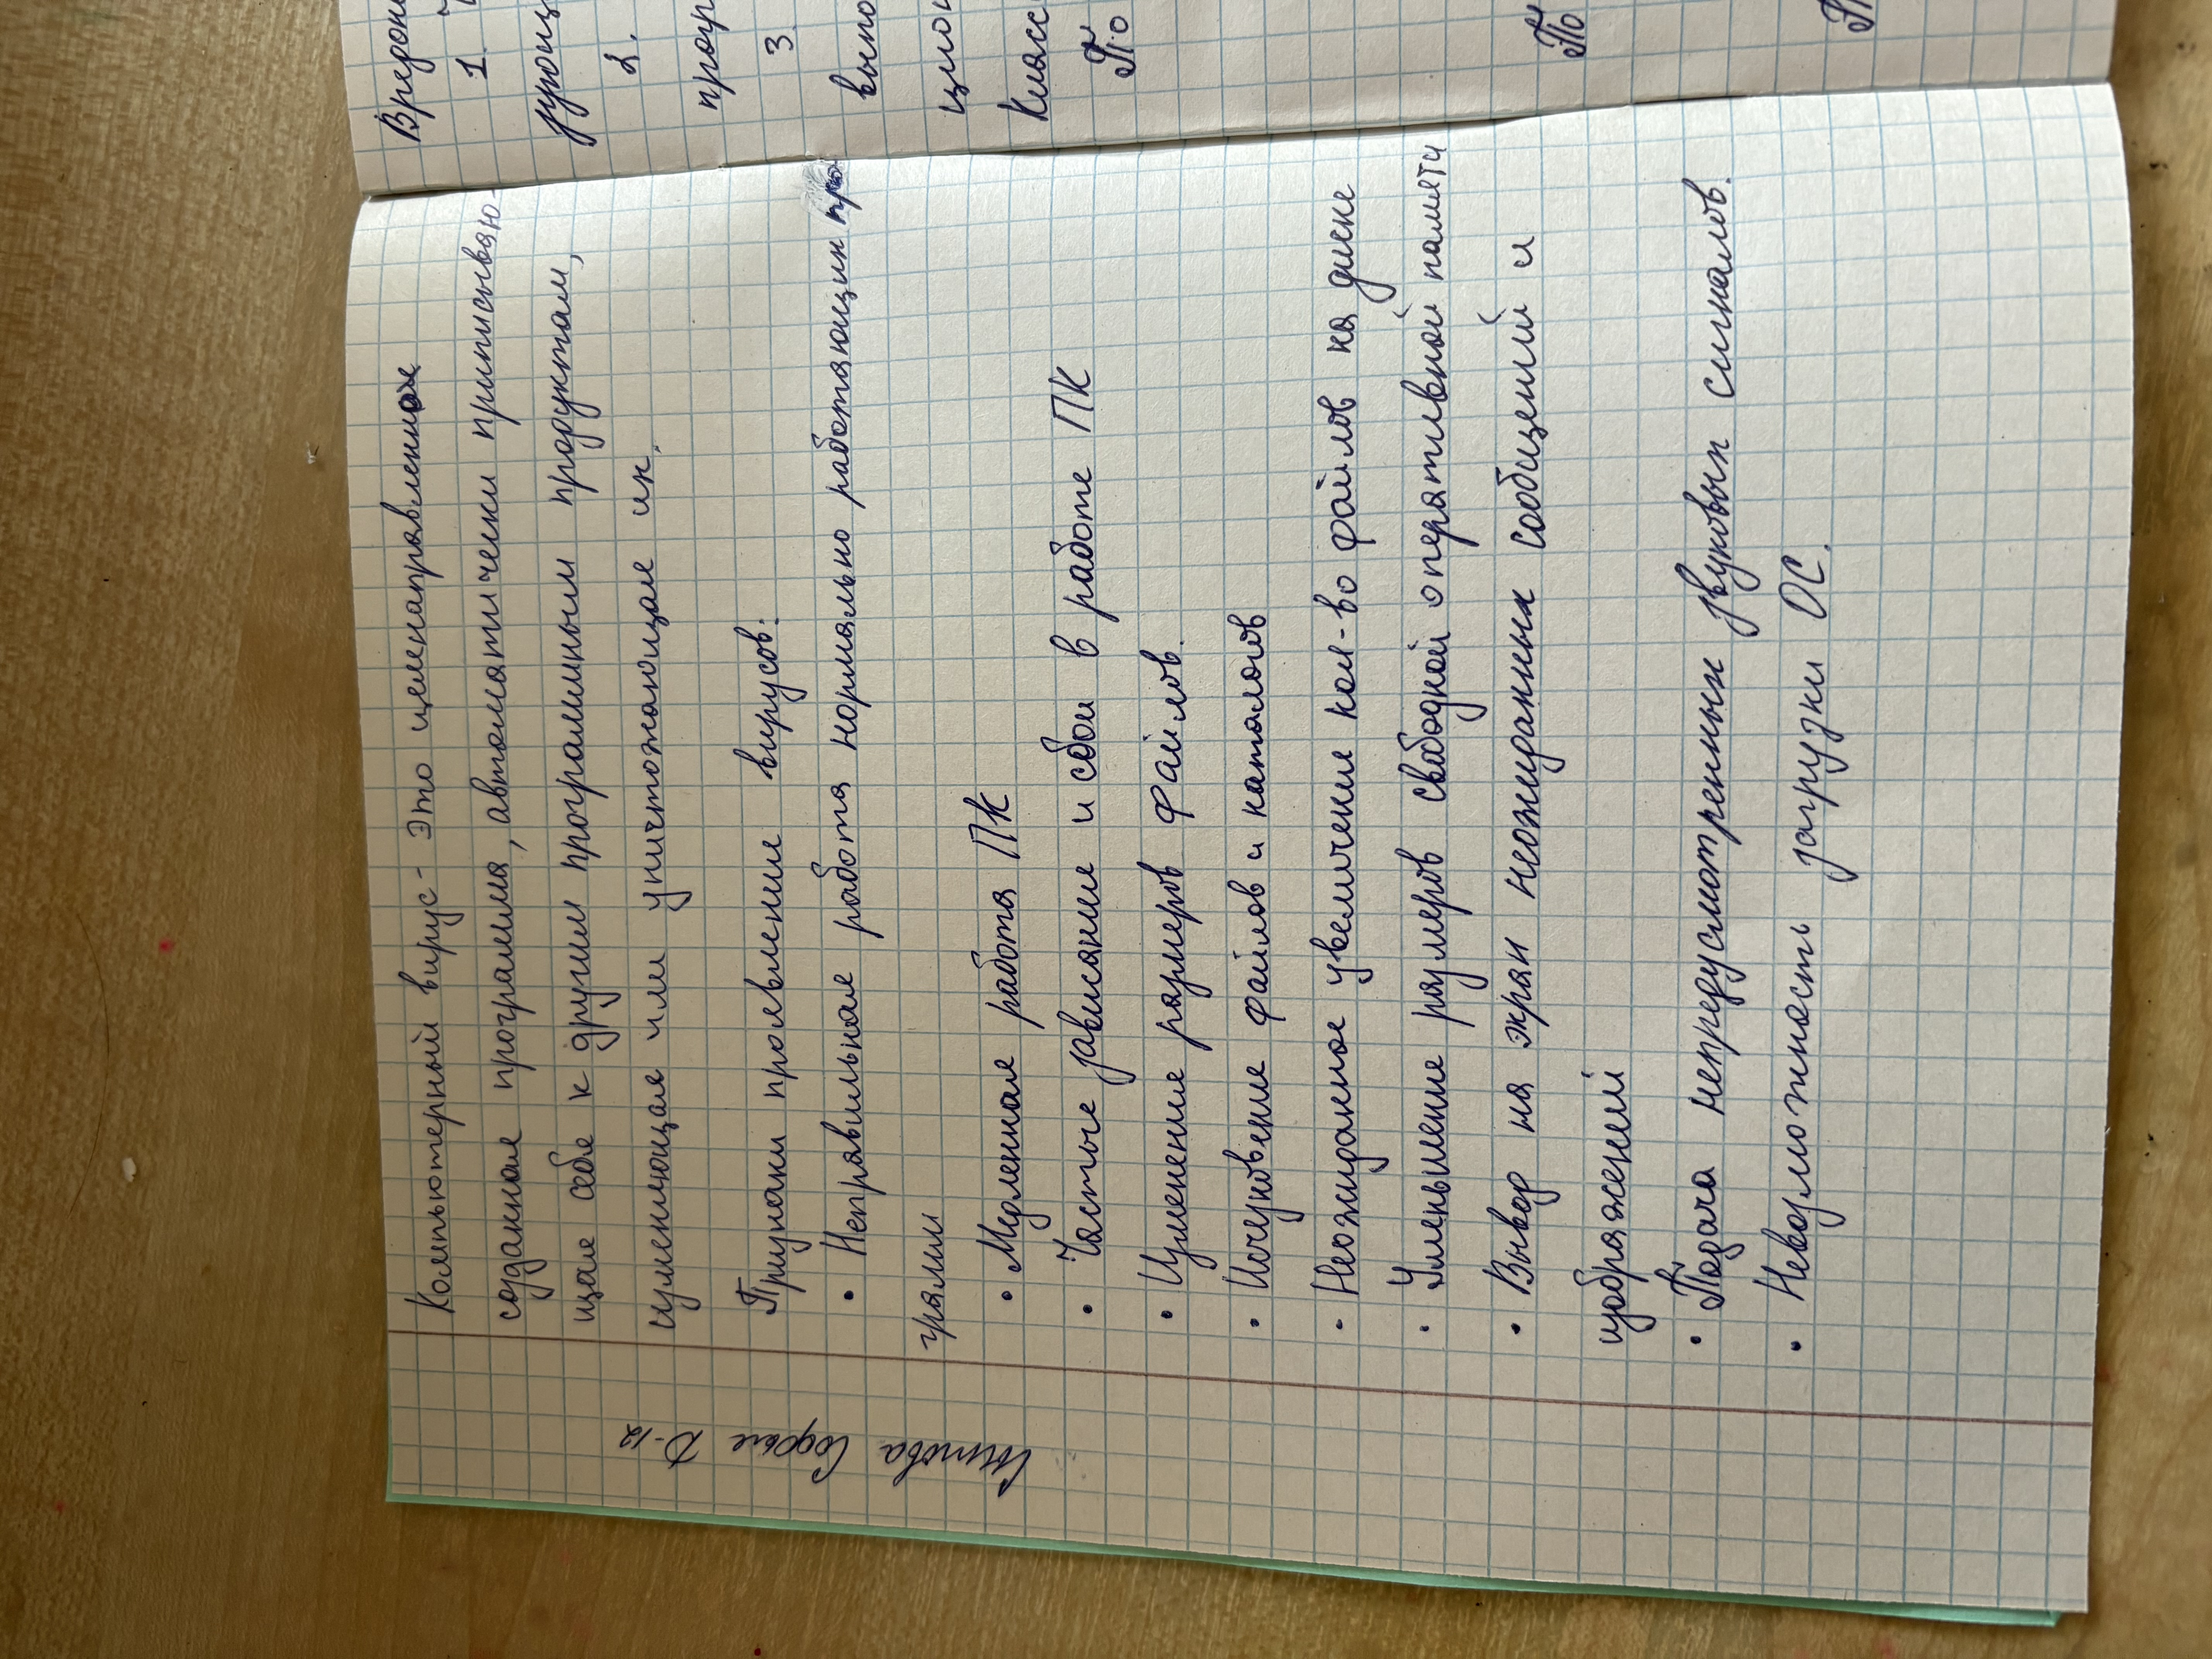 Компьютерный вирус - это целенаправленное
созданная программа, автоматически приписываю-
щая себя к другим программным продуктам,
изменяющая или уничтожающая их.
Признаки проявление вирусов:
• Неправильная работа нормально работающих про-
грамм
• Медленная работа ПК
• Частые зависание и сбои в работе ПК
• Изменение размеров файлов.
• Исчезновение файлов и каталогов
• Неожиданное увеличение кол-во файлов на диске
• Уменьшение размеров свободной оперативной памяти
• Вывод на экран неожиданных сообщений и
изображений
• Подача непредусмотренных звуковых сигналов.
• Невозможность загрузки ОС.
Софья D-12
1.
2.
3
По
По